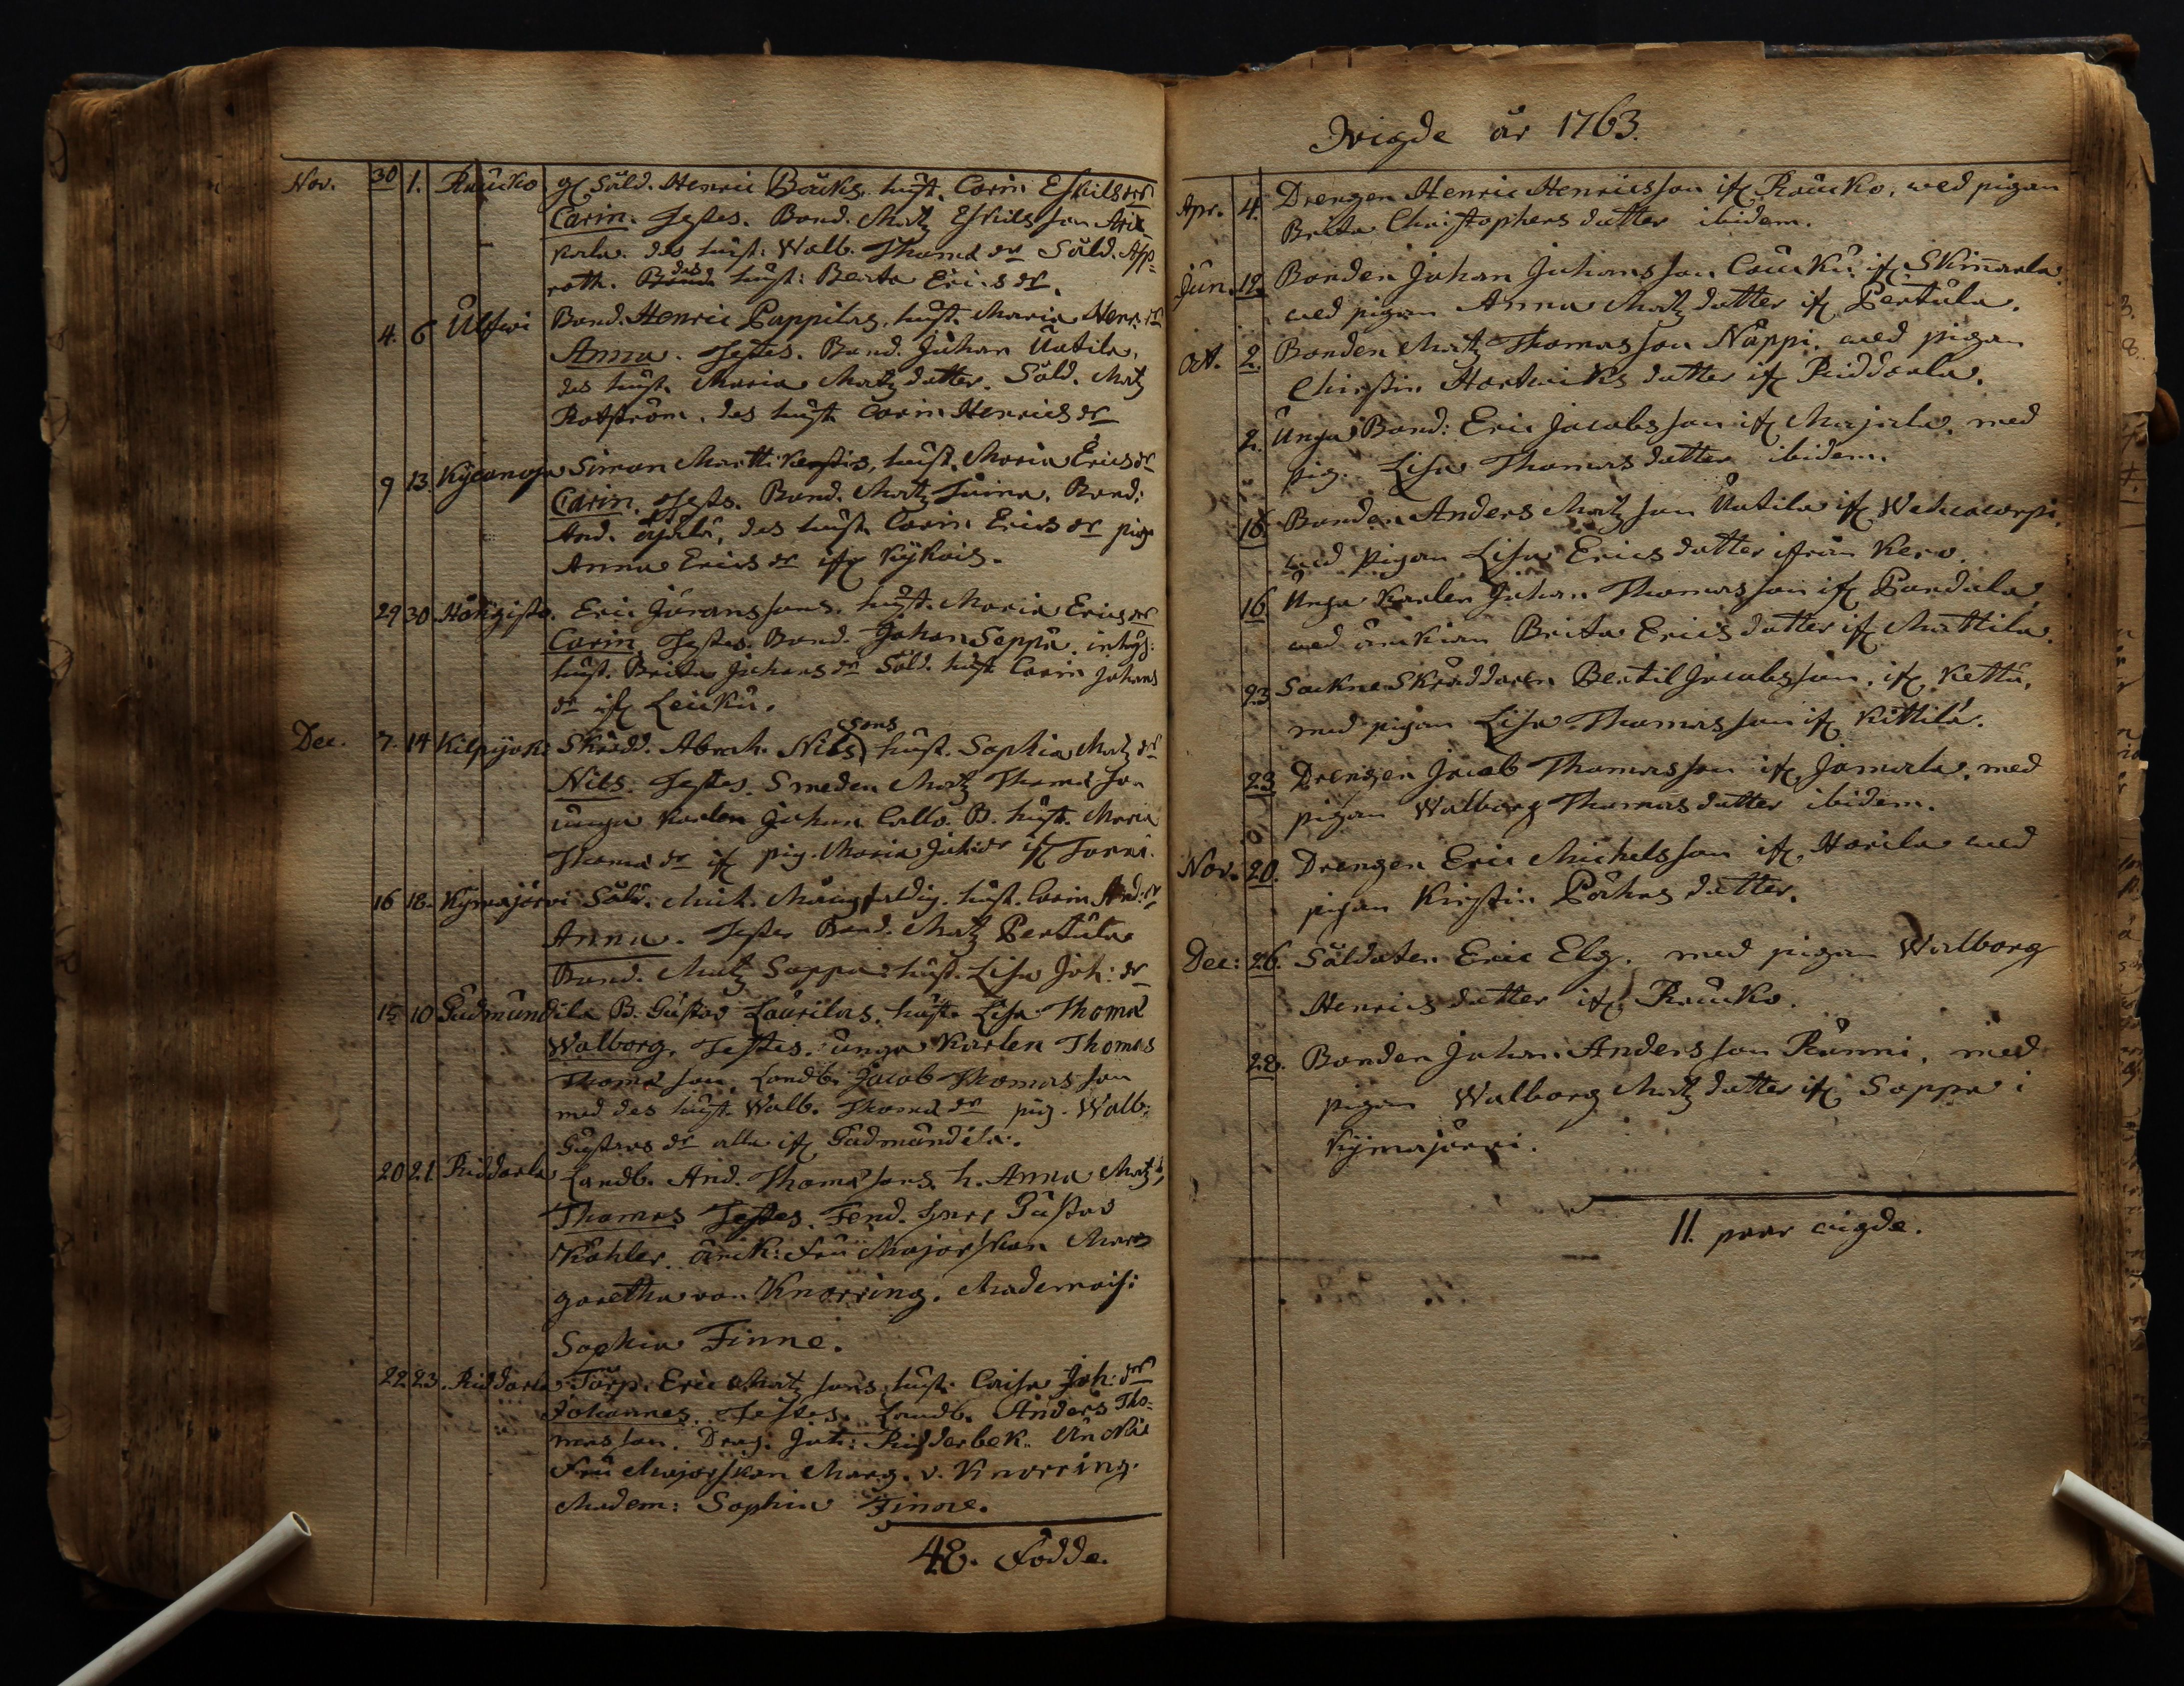 Nov. 30 1. Raucko gl Sold. Henric Böcks. hust. Carin Eskilsdr
Carin. Testes. Bond. Matz Eskilsson Ari-
kala. des hust: Walb. Thoma dr Sold. Asp-
roth. des hust: Berta Erics dr.
4. 6 Ulfwi Bond. Henric Pappilas, hust. Maria Henr. dr
Anna. Testes. Bond. Johan Uatila,
des hust. Maria Matz datter. Sold. Matz
Rotström. des hust. Carin Henrics dr
9 13. Kycanoja Simon Martti hust. Maria Erics dr
Carin. Tests. Bond. Matz Bond:
And. des hust. Carin Erics dr pig
Anna Erics dr ifr Kykois.
29 30 Eric Göranssons. hust. Maria Erics dr
Carin. Testes. Bond. Johan Seppä. inhys:
hust. Brita Johans dr Sold. hust Carin Johans
dr ifr Leuku.
Dec. 7. 14 Kilpijoki Skrädd. Abrah. Nils sons hust. Sophia Matz dr
Nils. Testes. Smeden Matz Thoma son
unga Karlen Johan Callo. B. hust. Maria
Thoma dr ifr pig. Maria Joh: dr ifr Torri.
16 18. Kymajörvi Sold. Mich. Mångfaldig. hust. Carin And: dr
Anna. Testes Bond. Matz Pertula
Bond. Matz Soppa: hust. Lisa Joh: dr
15 10 Gudmundila B. Gustav Laurilas. hust. Lisa Thoma
Walborg. Testes. unga Karlen Thomas
Thoma son. Landb. Jacob Thomasson
med des hust. Walb. Thoma dr pig. Walb:
Gustavs dr alla ifr Gudmundila.
20 21. Riddarla Landb. And. Thoma sons. h. Anna Matz
Thomas Testes. Fend. herr Gustav
Köhler. änck: Fru Majorskan Mar-
garetha von Knorring. Mademois:
Sophia Finne.
22 23. Riddarla Torp. Eric Matz sons hust: Caisa Joh: dr
Johannes. Testes. Landb. Anders Tho-
masson. Drag: Joh: Ridderbek.
Fru Majorskan Marg. v. Knorring.
Madem: Sophia Finne.
48. Födde.
Wigde år 1763.
Apr. 4. Drengen Henric Henricsson ifr Raucko, med pigan
Brita Christophers datter ibidem.
Jun. 19. Bonden Johan Johansson Caucku ifr Skinnarla
med pigan Anna Matz datter ifr Pertula.
Oct. 2. Bonden Matz Thomasson Näppi. med pigan
Christin Hartwicks datter ifr Riddarla.
2. Unga Bond: Eric Jacobsson ifr Majala. med
pig. Lisa Thomas datter ibidem.
16. Bonden Anders Matz son Uatila ifr Wehcacorpi,
med pigan Lisa Erics datter ifrån Kero.
16 Unga Karlen Johan Thomasson ifr Pandala
med änckian Brita Erics datter ifr Mattila.
23 Sockne Skräddaren Bertil Jacobsson. ifr Kettu,
med pigan Lisa Thomasson ifr Kittilä.
23 Drengen Jacob Thomasson ifr Jamala. med
pigan Walborg Thomas datter ibidem.
Nov. 20. Drengen Eric Michelsson ifr Harila med
pigan Kirstin Påhls datter.
Dec: 26. Soldaten Eric Elg. med pigan Walborg
Henrics datter ifr Raucko.
28. Bonden Johan Andersson Runni. med
pigan Walborg Matz datter ifr Soppa i
Kymajärvi.
11. paar wigde.